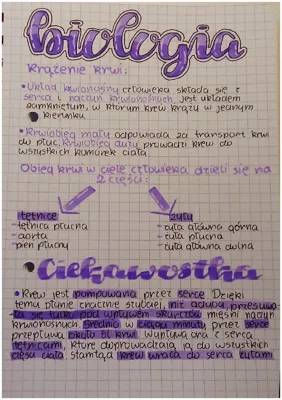 biologia
Krążenie krwi:
• Układ krwionośny człowieka składa się z
serca i naczyń krwionośnych. Jest układem
zamkniętym, w którym krew krąży w jednym
kierunku.
• Krwiobieg mały odpowiada za transport krwi
do płuc. Krwiobieg duży prowadzi krew do
wszystkich komórek ciała.
Obieg krwi w ciele człowieka dzieli się na
2 części:
tętnice
żyły
-tętnica płucna
-aorta
-pień płucny
-żyła główna górna
-żyła płucna
-żyła główna dolna
Ciekawostka
• Krew jest pompowana przez serce. Dzięki
temu płynie znacznie szybciej, niż gdyby przesuwa-
ła się tylko pod wpływem skurczów mięśni naczyń
krwionośnych. Średnio w ciągu minuty przez serce
przepływa około 5l krwi. Wypływa ona z serca
tętnicami, które doprowadzają ją do wszystkich
części ciała, stamtąd krew wraca do serca żyłami.